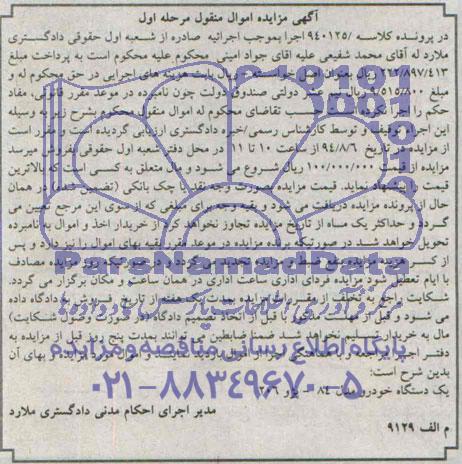 آگهی مزایده اموال منقول مرحله اول
در پرونده کلاسه /۹۴۰۱۲۵ اجرا بموجب اجرائیه صادره از شعبه اول حقوقی دادگستری
ملارد له آقای محمد شفیعی علیه اقای جواد امینی محکوم علیه محکوم است به پرداخت مبلغ
۲۲۲/۸۹۷/۴۱۳ ریال بعنوان اصل خواسته - ریال بابت هزینه های اجرایی در حق محکوم له و
مبلغ ۹/۵۱۵/۸۰۰ ریال نیم عشر دولتی صندوق دولت چون نامبرده در موعد مقرر قانونی مفاد
حکم را اجرا نکرده حسب تقاضای محکوم له اموال منقول محکوم بشرح زیر به وسیله
این اجرا توقیف و توسط کارشناس رسمی/خبره دادگستری ارزیابی گردیده است و مقرر است
از مزایده در تاریخ ۹۴/۸/۶ از ساعت ۱۰ تا ۱۱ در محل دفتر شعبه اول حقوقی بفروش میرسد
مزایده از قیمت ۱۰۰/۰۰۰/۰۰۰ ریال شروع می شود و مال متعلق به کسی است که بالاترین
قیمت را پیشنهاد نماید. قیمت مزایده بصورت وجه نقد یا چک بانکی (تضمین شده) در همان
حال از برنده مزایده دریافت می شود و بقیه وجه برای مبلغی که از سوی این مرجع تعیین می
گردد و حداکثر یک ماه از تاریخ مزایده تجاوز نخواهد کرد از خریدار اخذ و اموال به نامبرده
تحویل خواهد شد در صورتیکه برنده مزایده در موعد مقرر بقیه بهای اموال را نپردازد و پس
از کسر هزینه مزایده بنفع ضبط و مزایده تجدید می گردد در صورتیکه روز مزایده مصادف
با ایام تعطیل شود مزایده فردای اداری ساعت اداری در همان ساعت و مکان برگزار می گردد.
شکایت راجع به تخلف از مقررات مزایده بمدت یک هفته از تاریخ فروش به دادگاه داده
می شود و قبل از انقضای مدت یا قبل از اتخاذ تصمیم دادگاه (در صورت وصول شکایت)
مال به خریدار تسلیم نخواهد شد ضمنا متقاضیان می توانند بمدت پنج روز قبل از مزایده به
دفتر اجرا مراجعه و با هماهنگی اجرا از اموال بازدید نمایند و اموال مورد مزایده و بهای آن
بدین شرح است:
یک دستگاه خودرو مدل ۸۴ - پژو ۲۰۶
مدیر اجرای احکام مدنی دادگستری ملارد
م الف ۹۱۲۹
ParsNamadData
پایگاه اطلاع رسانی مناقصه و مزایده
۰۲۱-۸۸۳۴۹۶۷۰-۵